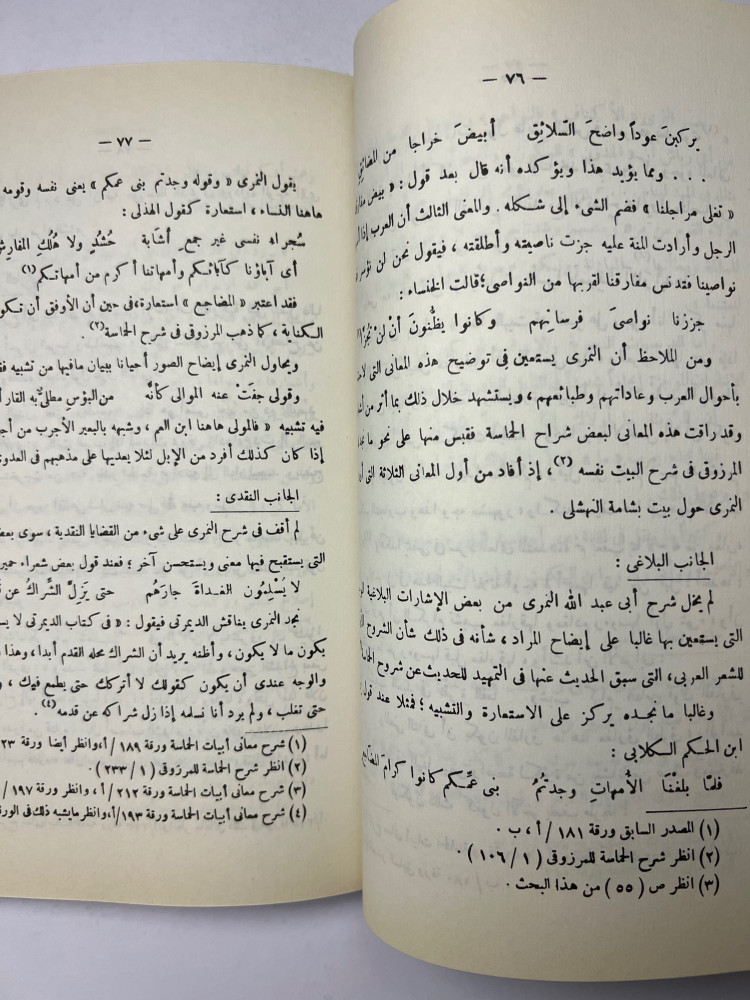 — ٧٦ —
يركبن عوداً واضحَ السّلائِق أبيضَ خراجا من المضائق
. . . ومما يؤيد هذا ويؤكده أنه قال بعد قول : « بيض مفارقنا
« تغلى مراجلنا » فضم الشىء إلى شكله . والمعنى الثالث أن العرب إذا
الرجل وأرادت المنة عليه جزت ناصيته وأطلقته ، فيقول نحن لن نؤسر
نواصينا فتدنس مفارقنا لقربها من النواصى؛ قالت الخنساء :
جززنا نواصىَ فرسانِهم وكانوا يظُنُّونَ أنْ لنْ تُجزَّا
ومن الملاحظ أن النمرى يستعين فى توضيح هذه المعانى التى
بأحوال العرب وعاداتهم وطبائعهم ، ويستشهد خلال ذلك بما أثر من
وقد راقت هذه المعانى لبعض شراح الحماسة فقبس منها على نحو
المرزوقى فى شرح البيت نفسه (٢) ، إذ أفاد من أول المعانى الثلاثة التى
النمرى حول بيت بشامة النهشلى .
الجانب البلاغى :
لم يخل شرح أبى عبد الله النمرى من بعض الإشارات البلاغية
التى يستعين بها غالبا على إيضاح المراد ، شأنه فى ذلك شأن الشروح
للشعر العربى، التى سبق الحديث عنها فى التمهيد للحديث عن شروح
وغالبا ما نجده يركز على الاستعارة والتشبيه ؛ فمثلا عند قول
ابن الحكم الكلابى :
فلمَّا بلغْنَا الأُمهاتِ وجدتُمُ بنى عمِّكم كانوا كرامَ المضاجعِ
(١) المصدر السابق ورقة ١٨١ / أ ، ب .
(٢) انظر شرح الحماسة للمرزوقى ( ١ / ١٠٦ ) .
(٣) انظر ص ( ٥٥ ) من هذا البحث .
— ٧٧ —
يقول النمرى « وقوله وجدتم بنى عمكم » يعنى نفسه وقومه
هاهنا النساء ، استعارة كقول الهذلى :
سُجراه نفسى غير جمعِ أشابة حُشُدٍ ولا هُلُكِ المفارِش
أى آباؤنا كآبائكم وأمهاتنا أكرم من أمهاتكم (١)
فقد اعتبر « المضاجع » استعارة، فى حين أن الأوفق أن تكو
الكناية ، كما ذهب المرزوقى فى شرح الحماسة (٢) .
ويحاول النمرى إيضاح الصور أحيانا ببيان مافيها من تشبيه
وقولى جفَتْ عنه الموالى كأنَّه من البؤسِ مطلىٌّ به القار
فيه تشبيه « فالمولى هاهنا ابن العم ، وشبهه بالبعير الأجرب من
إذا كان كذلك أفرد من الإبل لئلا يعديها على مذهبهم فى العدوى
الجانب النقدى :
لم أقف فى شرح النمرى على شىء من القضايا النقدية ، سوى
التى يستقبح فيها معنى ويستحسن آخر ؛ فعند قول بعض شعراء حمير
لا يُسْلِمُون الغداةَ جارَهُم حتى يَزِلَّ الشِّراكُ عن
نجد النمرى يناقش الديمرتى فيقول : « فى كتاب الديمرتى لا
يكون ما لا يكون ، وأظنه يريد أن الشراك محله القدم أبدا ، وهذا
والوجه عندى أن يكون كقولك لا أتركك حتى يطمع فيك ،
حتى تغلب ، ولم يرد أنا نسلمه إذا زل شراكه عن قدمه (٤) .
(١) شرح معانى أبيات الحماسة ورقة ١٨٩ / أ، وانظر أيضا ورقة
(٢) انظر شرح الحماسة للمرزوقى ( ١ / ٢٣٣ ) .
(٣) شرح معانى أبيات الحماسة ورقة ٢١٢ / أ ، وانظر ورقة ١٩٧
(٤) شرح معانى أبيات الحماسة ورقة ١٩٣ / أ، وانظر مايشبه ذلك فى